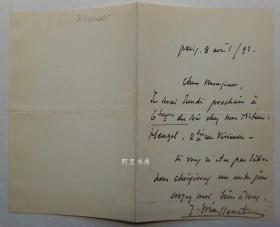 Massenet
Paris, 8 avril/92.
Cher Monsieur,
Je serai lundi prochain à
6 heures du soir chez mon éditeur:
Heugel, 2 bis rue Vivienne –
Si vous n'êtes pas libre
nous choisirons un autre jour
croyez moi bien à vous.
J. Massenet